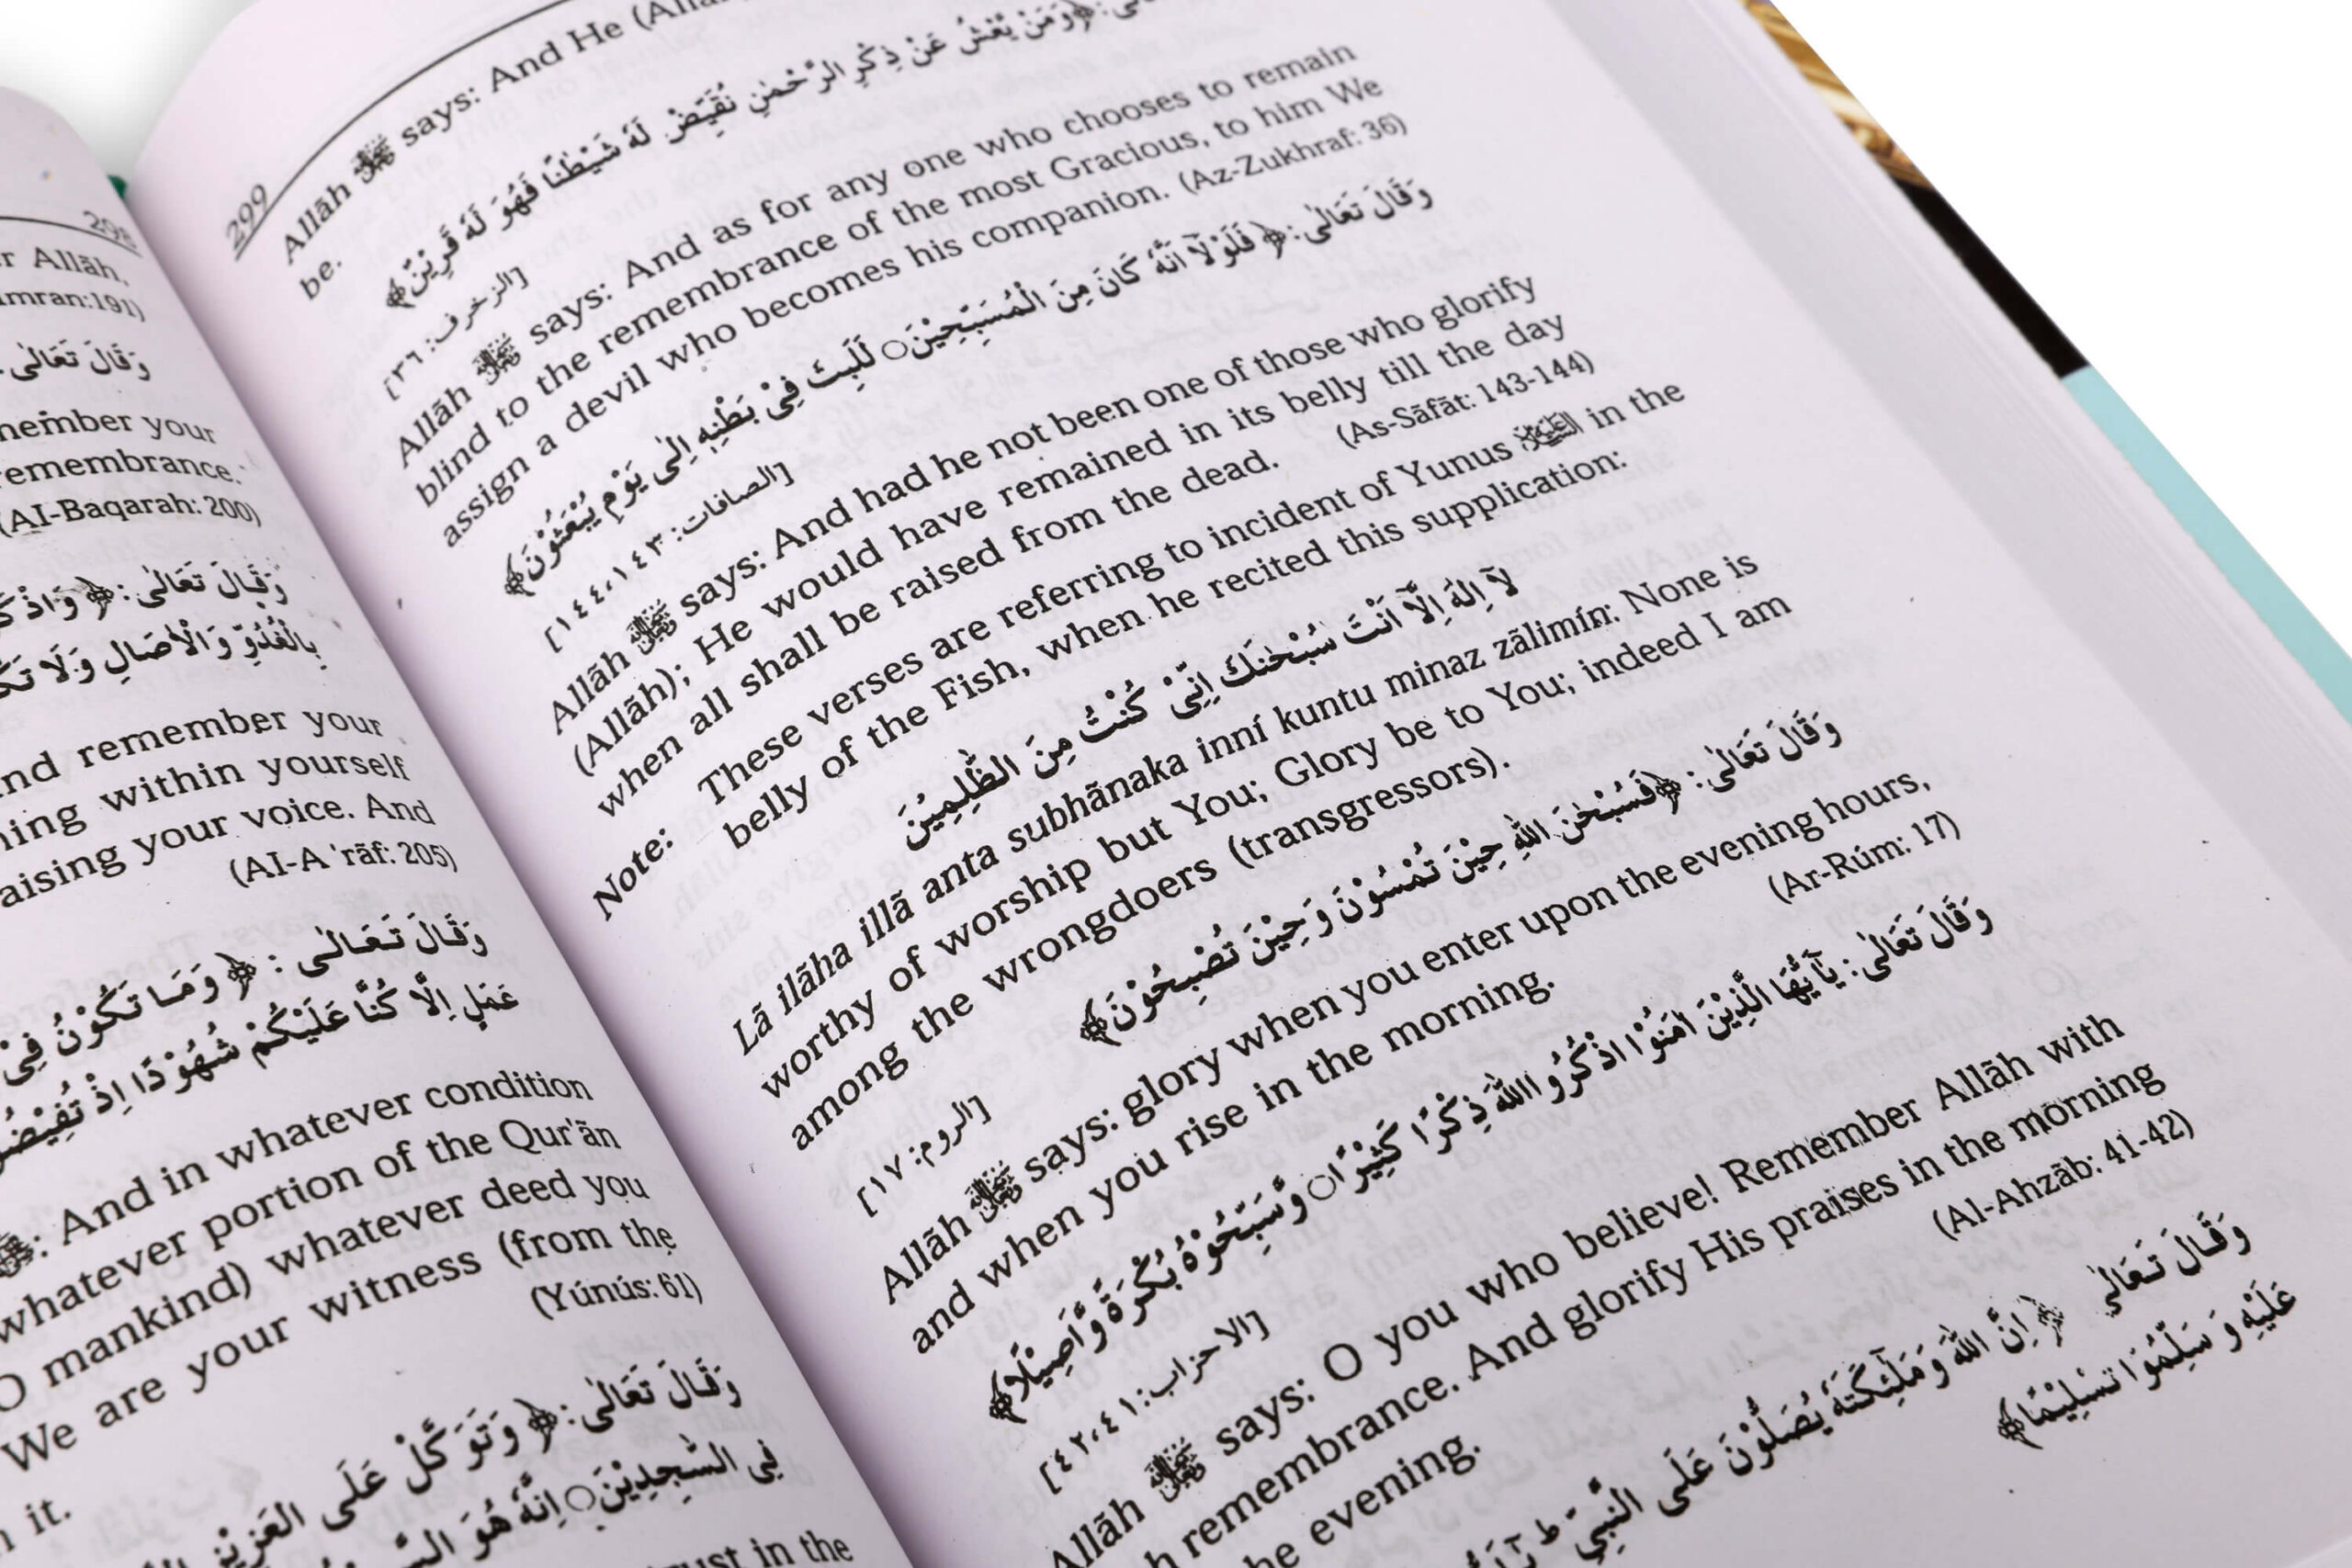 298
r Allāh,
mran:191)
وَقَالَ تَعَالٰى
member your
remembrance.
(AI-Baqarah: 200)
وَقَالَ تَعَالٰى: ﴿ وَاذْكُ
بِالْغُدُوِّ وَالْاٰصَالِ وَلَا تَكُ
nd remember your
ning within yourself
aising your voice. And
(AI-A 'rāf: 205)
وَقَالَ تَعَالٰى : ﴿ وَمَا تَكُوْنُ فِىْ
عَمَلٍ اِلَّا كُنَّا عَلَيْكُمْ شُهُوْدًا اِذْ تُفِيْضُو
: And in whatever condition
whatever portion of the Qur'ān
O mankind) whatever deed you
We are your witness (from the
(Yúnús: 61)
it.
وَقَالَ تَعَالٰى: ﴿ وَتَوَكَّلْ عَلَى الْعَزِيْزِ
فِى السّٰجِدِيْنَ○ اِنَّهٗ هُوَ السَّ
rust in the
299
Allāh ﷻ says: And He (Allā
be.
﴿وَمَنْ يَّعْشُ عَنْ ذِكْرِ الرَّحْمٰنِ نُقَيِّضْ لَهٗ شَيْطٰنًا فَهُوَ لَهٗ قَرِيْنٌ﴾
[الزخرف: ٣٦]
Allāh ﷻ says: And as for any one who chooses to remain
blind to the remembrance of the most Gracious, to him We
assign a devil who becomes his companion. (Az-Zukhraf: 36)
وَقَالَ تَعَالٰى: ﴿ فَلَوْلَآ اَنَّهٗ كَانَ مِنَ الْمُسَبِّحِيْنَ○ لَلَبِثَ فِىْ بَطْنِهٖ اِلٰى يَوْمِ يُبْعَثُوْنَ﴾
[الصافات: ١٤٣،١٤٤]
Allāh ﷻ says: And had he not been one of those who glorify
(Allāh); He would have remained in its belly till the day
when all shall be raised from the dead. (As-Sāfāt: 143-144)
Note: These verses are referring to incident of Yunus in the
belly of the Fish, when he recited this supplication:
لَآ اِلٰهَ اِلَّآ اَنْتَ سُبْحٰنَكَ اِنِّىْ كُنْتُ مِنَ الظّٰلِمِيْنَ
Lā ilāha illā anta subhānaka inní kuntu minaz zālimín: None is
worthy of worship but You; Glory be to You; indeed I am
among the wrongdoers (transgressors).
وَقَالَ تَعَالٰى: ﴿فَسُبْحٰنَ اللهِ حِيْنَ تُمْسُوْنَ وَحِيْنَ تُصْبِحُوْنَ﴾
[الروم: ١٧]
Allāh ﷻ says: glory when you enter upon the evening hours,
and when you rise in the morning. (Ar-Rúm: 17)
وَقَالَ تَعَالٰى: يٰٓاَيُّهَا الَّذِيْنَ اٰمَنُوْا اذْكُرُوا اللهَ ذِكْرًا كَثِيْرًا○ وَّسَبِّحُوْهُ بُكْرَةً وَّاَصِيْلًا﴾
[الاحزاب: ٤١،٤٢]
Allāh ﷻ says: O you who believe! Remember Allāh with
h remembrance. And glorify His praises in the morning
he evening. (Al-Ahzāb: 41-42)
وَقَالَ تَعَالٰى ﴿ اِنَّ اللهَ وَمَلٰٓئِكَتَهٗ يُصَلُّوْنَ عَلَى النَّبِىِّ ط
عَلَيْهِ وَ سَلِّمُوْا تَسْلِيْمًا﴾